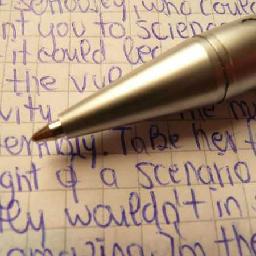 seriously, who could
nt you to scien
it could be
the vi
vity. the m
ternity. To be her f
ght of a scenario
ey wouldn't in
amazing. I'm the